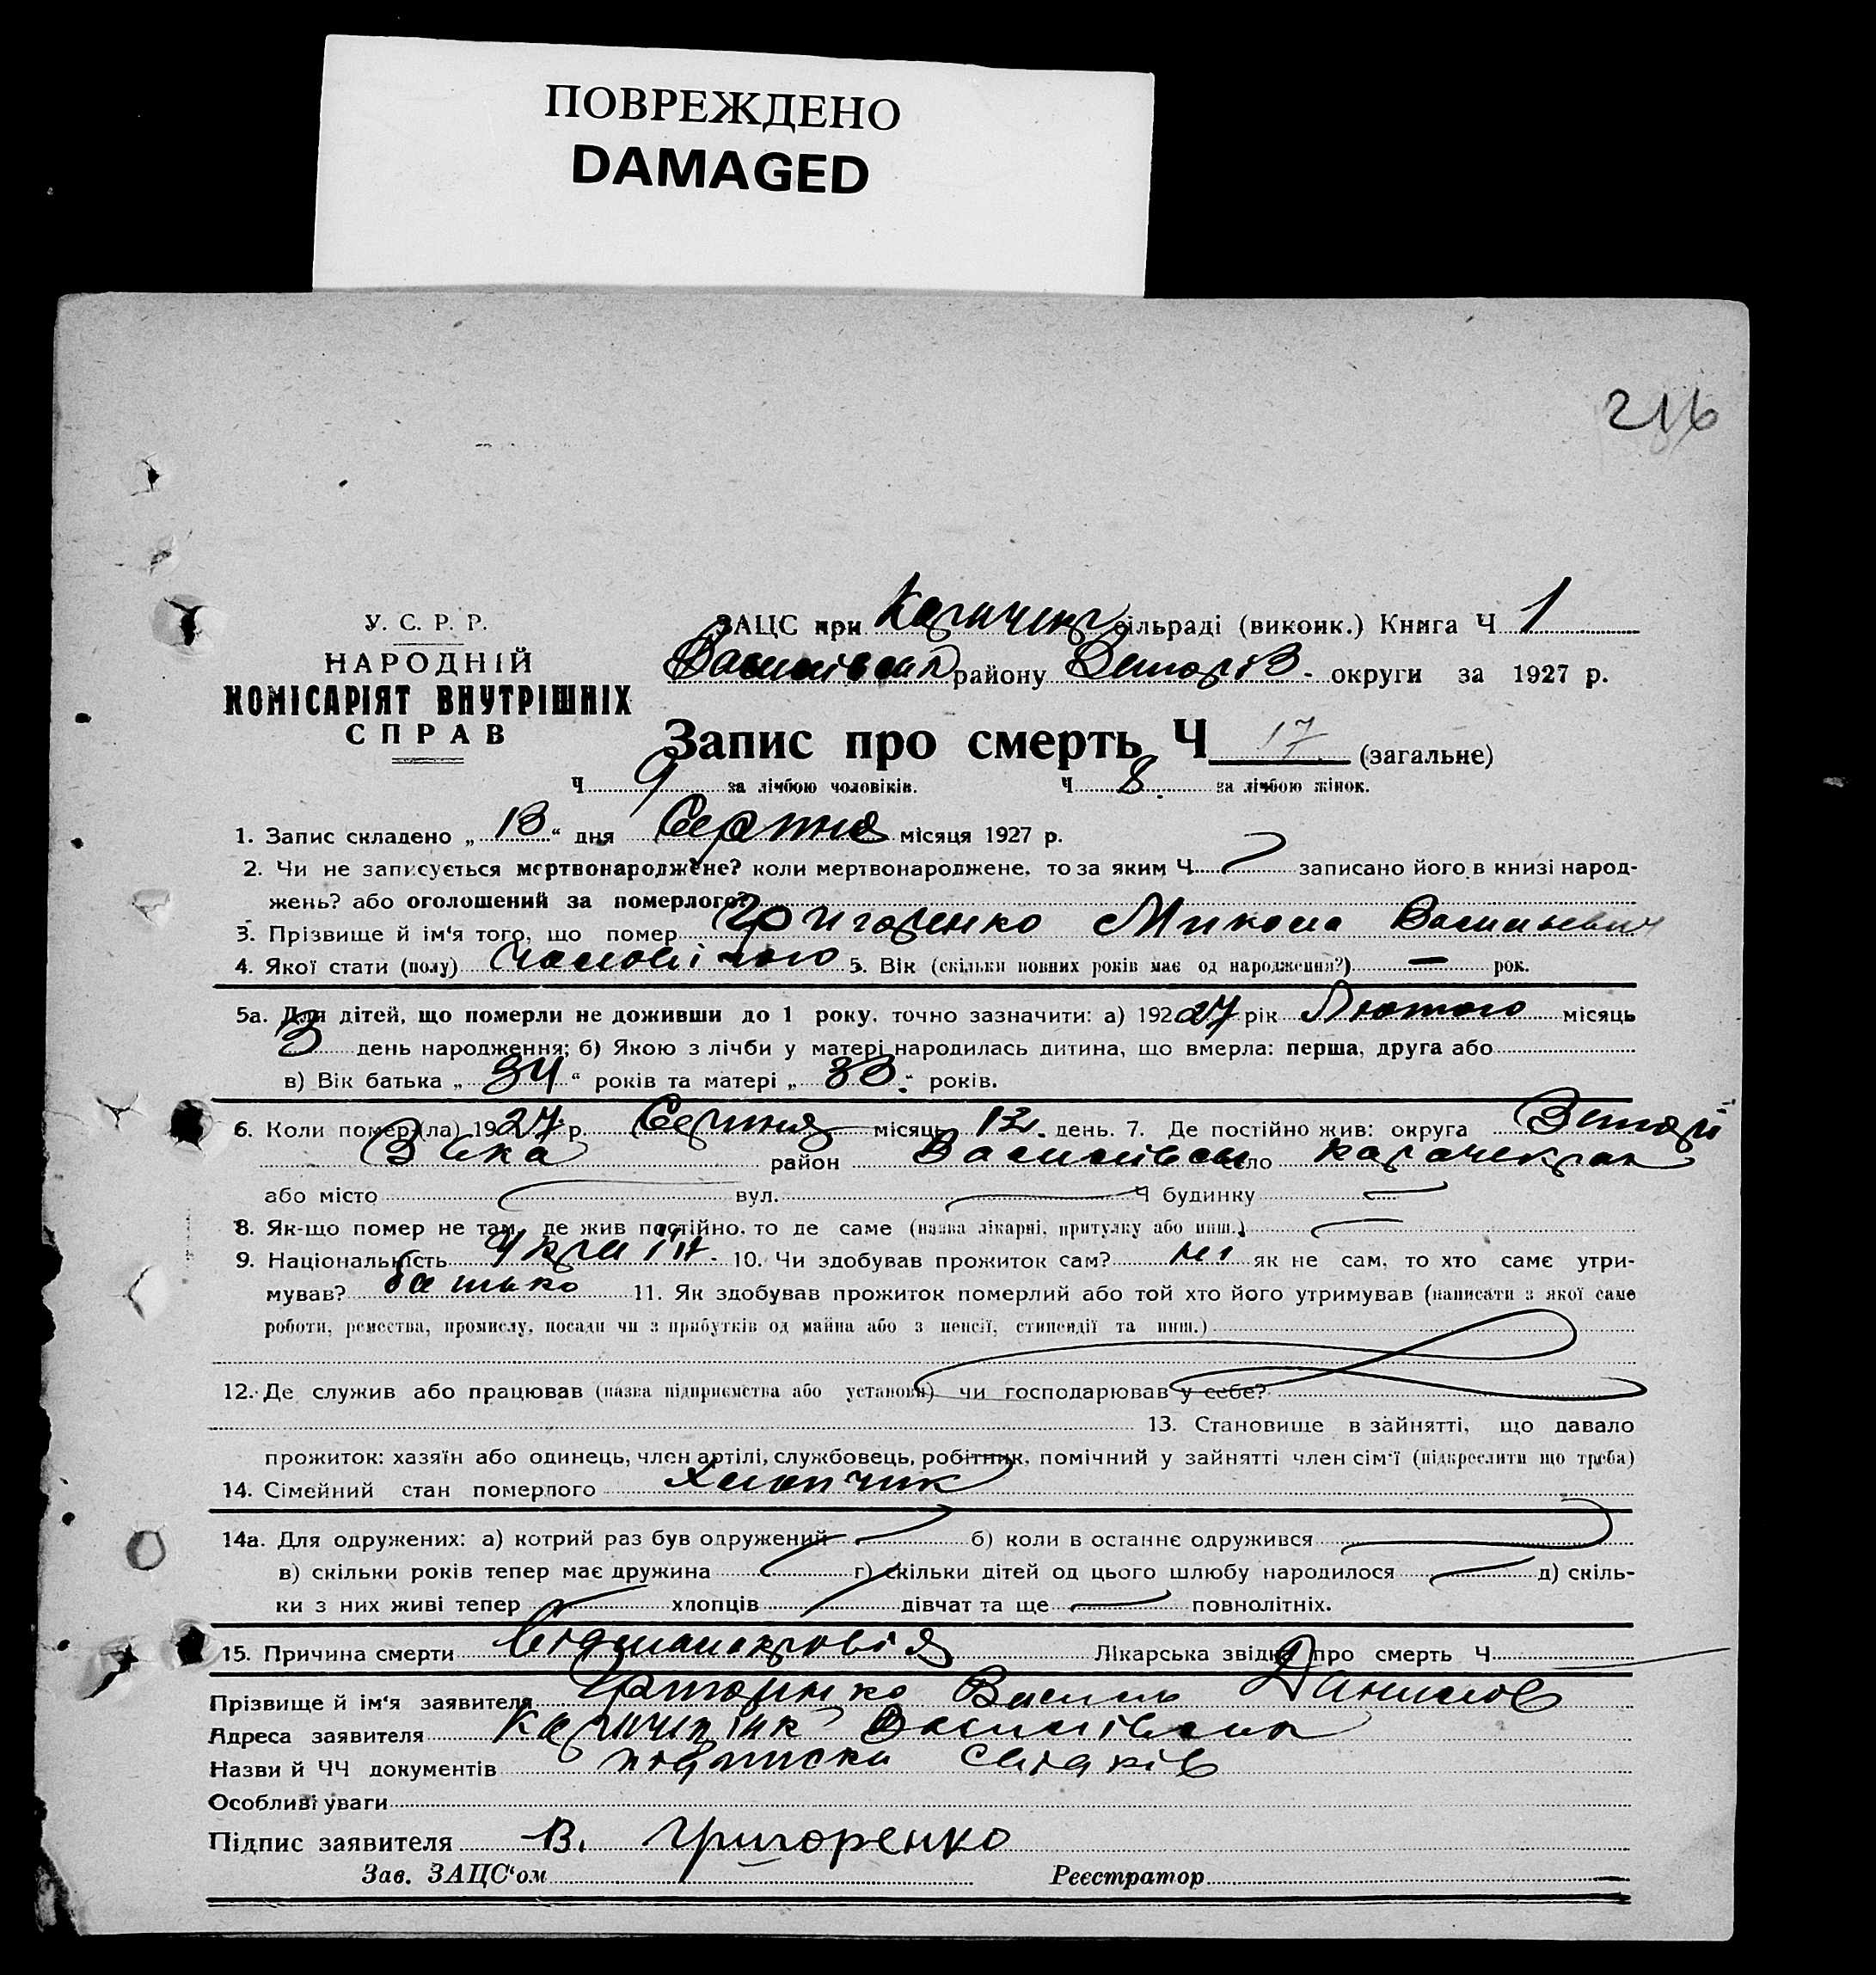 ПОВРЕЖДЕНО
DAMAGED
216
У. С. Р. Р.
НАРОДНІЙ
КОМІСАРІЯТ ВНУТРІШНІХ
СПРАВ
ЗАЦС при сільраді (виконк.) Книга Ч 1
району округи за 1927 р.
Запис про смерть Ч 17 (загальне)
Ч 9 за лічбою чоловіків. Ч 8. за лічбою жінок.
1. Запис складено „ 13 “ дня Серпня місяця 1927 р.
2. Чи не записується мертвонароджене? коли мертвонароджене, то за яким Ч записано його в книзі народ-
жень? або оголошений за померлого?
3. Прізвище й ім'я того, що помер Григоренко Микола Васильевич
4. Якої стати (полу) 5. Вік (скільки повних років має од народження?) — рок.
5а. Для дітей, що померли не доживши до 1 року, точно зазначити: а) 192 27 рік Лютого місяць
3 день народження; б) Якою з лічби у матері народилась дитина, що вмерла: перша, друга або
в) Вік батька „ 34 “ років та матері „ 33. “ років.
6. Коли помер (ла) 19 27 р. Серпня місяць 12. день. 7. Де постійно жив: округа
район село
або місто вул. Ч будинку
8. Як-що помер не там, де жив постійно, то де саме (назва лікарні, притулку або инш.)
9. Національність Україн. 10. Чи здобував прожиток сам? ні як не сам, то хто саме утри-
мував? батько 11. Як здобував прожиток померлий або той хто його утримував (написати з якої саме
роботи, ремества, промислу, посади чи з прибутків од майна або з пенсії, стипендії та инш.)
12. Де служив або працював (назва підприємства або установи) чи господарював у себе?
13. Становище в зайнятті, що давало
прожиток: хазяїн або одинець, член артілі, службовець, робітник, помічний у зайнятті член сім'ї (підкреслити що треба)
14. Сімейний стан померлого Хлопчик
14а. Для одружених: а) котрий раз був одружений б) коли в останнє одружився
в) скільки років тепер має дружина г) скільки дітей од цього шлюбу народилося д) скіль-
ки з них живі тепер хлопців дівчат та ще повнолітніх.
15. Причина смерти Лікарська звідка про смерть Ч
Прізвище й ім'я заявителя Григоренко Василь Данилов
Адреса заявителя
Назви й ЧЧ документів підписка свідків
Особливі уваги
Підпис заявителя В. Григоренко
Зав. ЗАЦС'ом Реєстратор